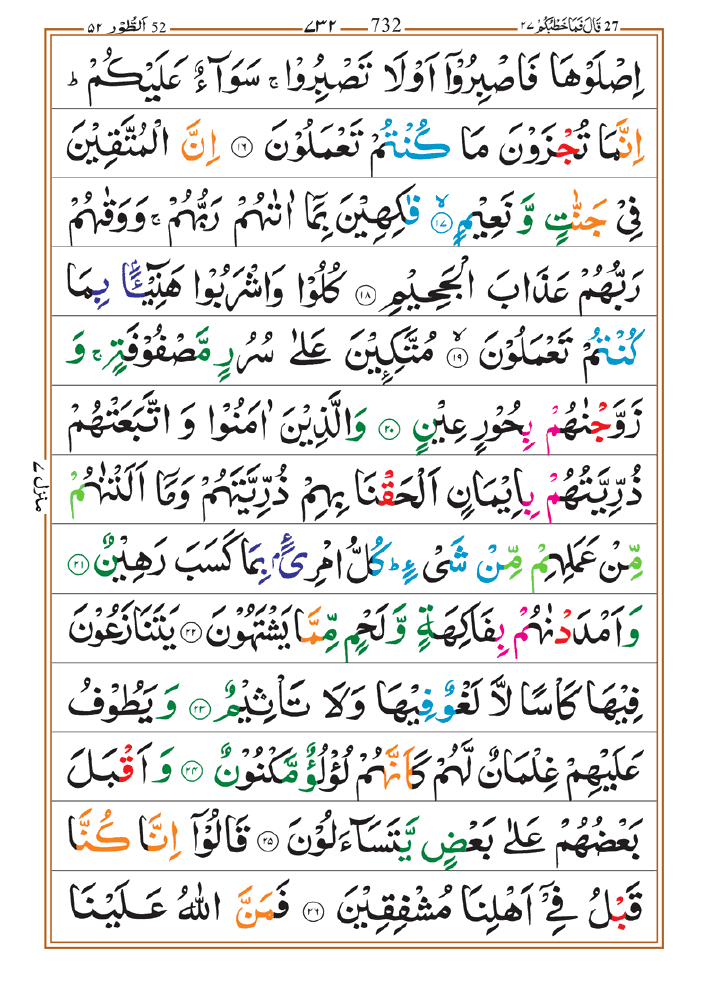 27 قَالَ فَمَا خَطْبُكُمْ ٢٧ 732 ٧٣٢ 52 اَلطُّوْر ٥٢
اِصْلَوْهَا فَاصْبِرُوْۤا اَوْ لَا تَصْبِرُوْا ۚ سَوَآءٌ عَلَیْكُمْ ؕ
اِنَّمَا تُجْزَوْنَ مَا كُنْتُمْ تَعْمَلُوْنَ ۝۱۶ اِنَّ الْمُتَّقِیْنَ
فِیْ جَنّٰتٍ وَّ نَعِیْمٍ ۝۱۷ۙ فٰكِهِیْنَ بِمَاۤ اٰتٰىهُمْ رَبُّهُمْ ۚ وَ وَقٰىهُمْ
رَبُّهُمْ عَذَابَ الْجَحِیْمِ ۝۱۸ كُلُوْا وَ اشْرَبُوْا هَنِیْٓـًٔۢا بِمَا
كُنْتُمْ تَعْمَلُوْنَ ۝۱۹ۙ مُتَّكِـِٕیْنَ عَلٰی سُرُرٍ مَّصْفُوْفَةٍ ۚ وَ
زَوَّجْنٰهُمْ بِحُوْرٍ عِیْنٍ ۝۲۰ وَ الَّذِیْنَ اٰمَنُوْا وَ اتَّبَعَتْهُمْ
ذُرِّیَّتُهُمْ بِاِیْمَانٍ اَلْحَقْنَا بِهِمْ ذُرِّیَّتَهُمْ وَ مَاۤ اَلَتْنٰهُمْ
مِّنْ عَمَلِهِمْ مِّنْ شَیْءٍ ؕ كُلُّ امْرِئٍۭ بِمَا كَسَبَ رَهِیْنٌ ۝۲۱
وَ اَمْدَدْنٰهُمْ بِفَاكِهَةٍ وَّ لَحْمٍ مِّمَّا یَشْتَهُوْنَ ۝۲۲ یَتَنَازَعُوْنَ
فِیْهَا كَاْسًا لَّا لَغْوٌ فِیْهَا وَ لَا تَاْثِیْمٌ ۝۲۳ وَ یَطُوْفُ
عَلَیْهِمْ غِلْمَانٌ لَّهُمْ كَاَنَّهُمْ لُؤْلُؤٌ مَّكْنُوْنٌ ۝۲۴ وَ اَقْبَلَ
بَعْضُهُمْ عَلٰی بَعْضٍ یَّتَسَآءَلُوْنَ ۝۲۵ قَالُوْۤا اِنَّا كُنَّا
قَبْلُ فِیْۤ اَهْلِنَا مُشْفِقِیْنَ ۝۲۶ فَمَنَّ اللّٰهُ عَلَیْنَا
منزل ٧